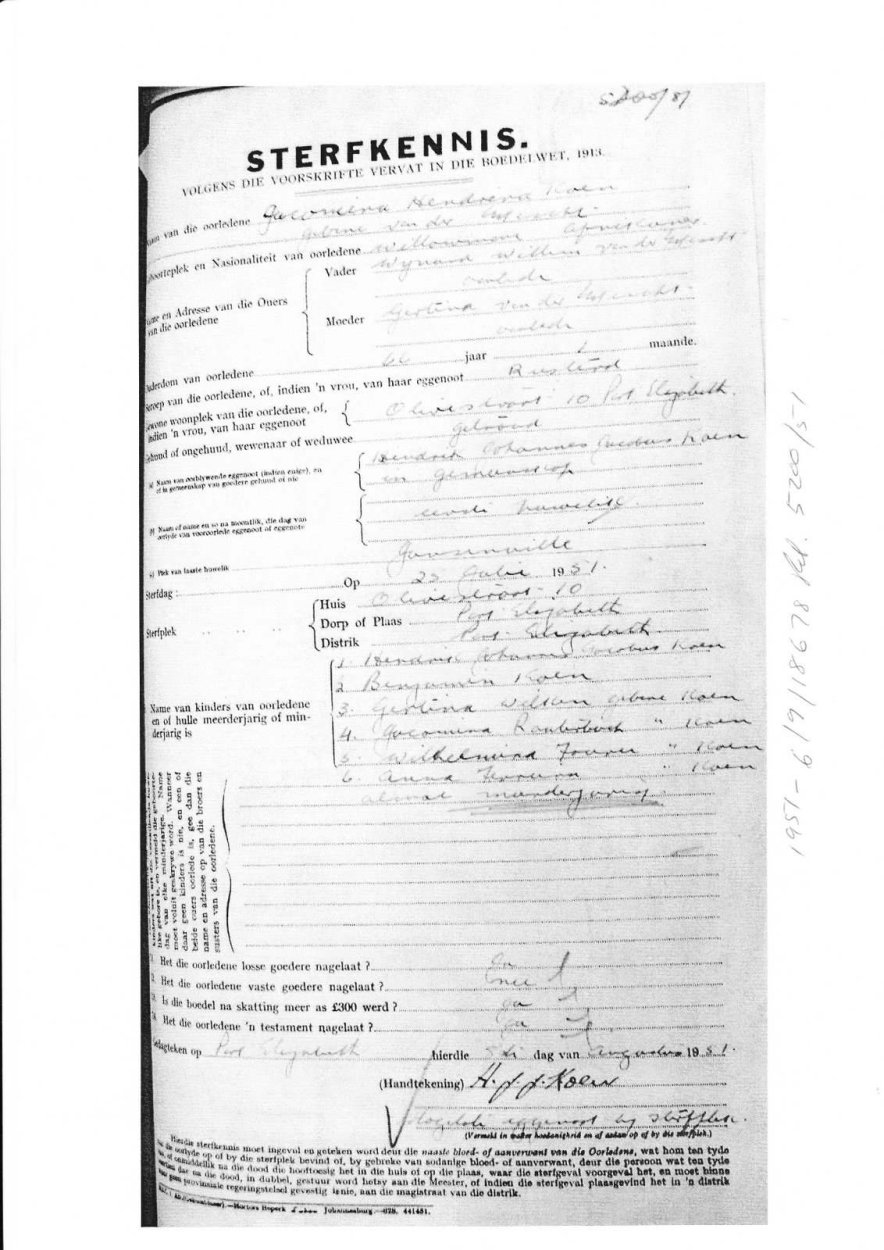 5200/51
STERFKENNIS.
VOLGENS DIE VOORSKRIFTE VERVAT IN DIE BOEDELWET, 1913.
van die oorledene Jacomina Hendrena Koen
gebore van der
en Nasionaliteit van oorledene Willowmore Afrikaner
en Adresse van die Ouers
van die oorledene
Vader Wynand Willem van der
oorlede
Moeder Gertina van der
oorlede
van oorledene 66 jaar 1 maande.
van die oorledene, of, indien 'n vrou, van haar eggenoot
woonplek van die oorledene, of,
indien 'n vrou, van haar eggenoot
Olivestraat 10 Port Elizabeth.
of ongehuud, wewenaar of weduwee Getroud
Naam van oorblywende eggenoot (indien enige), en
of in gemeenskap van goedere gehuud of nie
Hendrik Johannes Jacobus Koen
in gemeenskap
Naam of name en so na moontlik, die dag van
oorlyde van vooroorlede eggenoot of eggenote
eerste huwelik.
Plek van laaste huwelik Jansenville
Sterfdag : Op 25 Julie 1951.
Sterfplek
Huis Olivestraat 10
Dorp of Plaas Port Elizabeth
Distrik Port Elizabeth
Name van kinders van oorledene
en of hulle meerderjarig of min-
derjarig is
1. Hendrik Johannes Jacobus Koen
2 Benjamin Koen
3. Gertina gebore Koen
4. Jacomina " Koen
5. Wilhelmina Fourie " Koen
6. Anna " Koen
almal meerderjarig.
dag van elke minderjarige. Name
moet voluit geskrywe word. Wanneer
daar geen kinders is nie, en een of
beide ouers oorlede is, gee dan die
name en adresse op van die broers en
susters van die oorledene.
Het die oorledene losse goedere nagelaat ? Ja
Het die oorledene vaste goedere nagelaat ? nee
Is die boedel na skatting meer as £300 werd ? ja
Het die oorledene 'n testament nagelaat ? Ja
Gedagteken op Port Elizabeth hierdie 8ste dag van Augustus 1951.
(Handtekening) H. J. J. Koen
eggenoot by sterfplek.
(Vermeld in watter hoedanigheid en of aldan op of by die sterfplek.)
Hierdie sterfkennis moet ingevul en geteken word deur die naaste bloed- of aanverwant van die Oorledene, wat hom ten tyde
op of by die sterfplek bevind of, by gebreke van sodanige bloed- of aanverwant, deur die persoon wat ten tyde
na die dood die hooftoesig het in die huis of op die plaas, waar die sterfgeval voorgeval het, en moet binne
dae na die dood, in dubbel, gestuur word hetsy aan die Meester, of indien die sterfgeval plaasgevind het in 'n distrik
provinsiale regeringstelsel gevestig is nie, aan die magistraat van die distrik.
Johannesburg.—
1951 - 6/9/18678 Ref. 5200/51